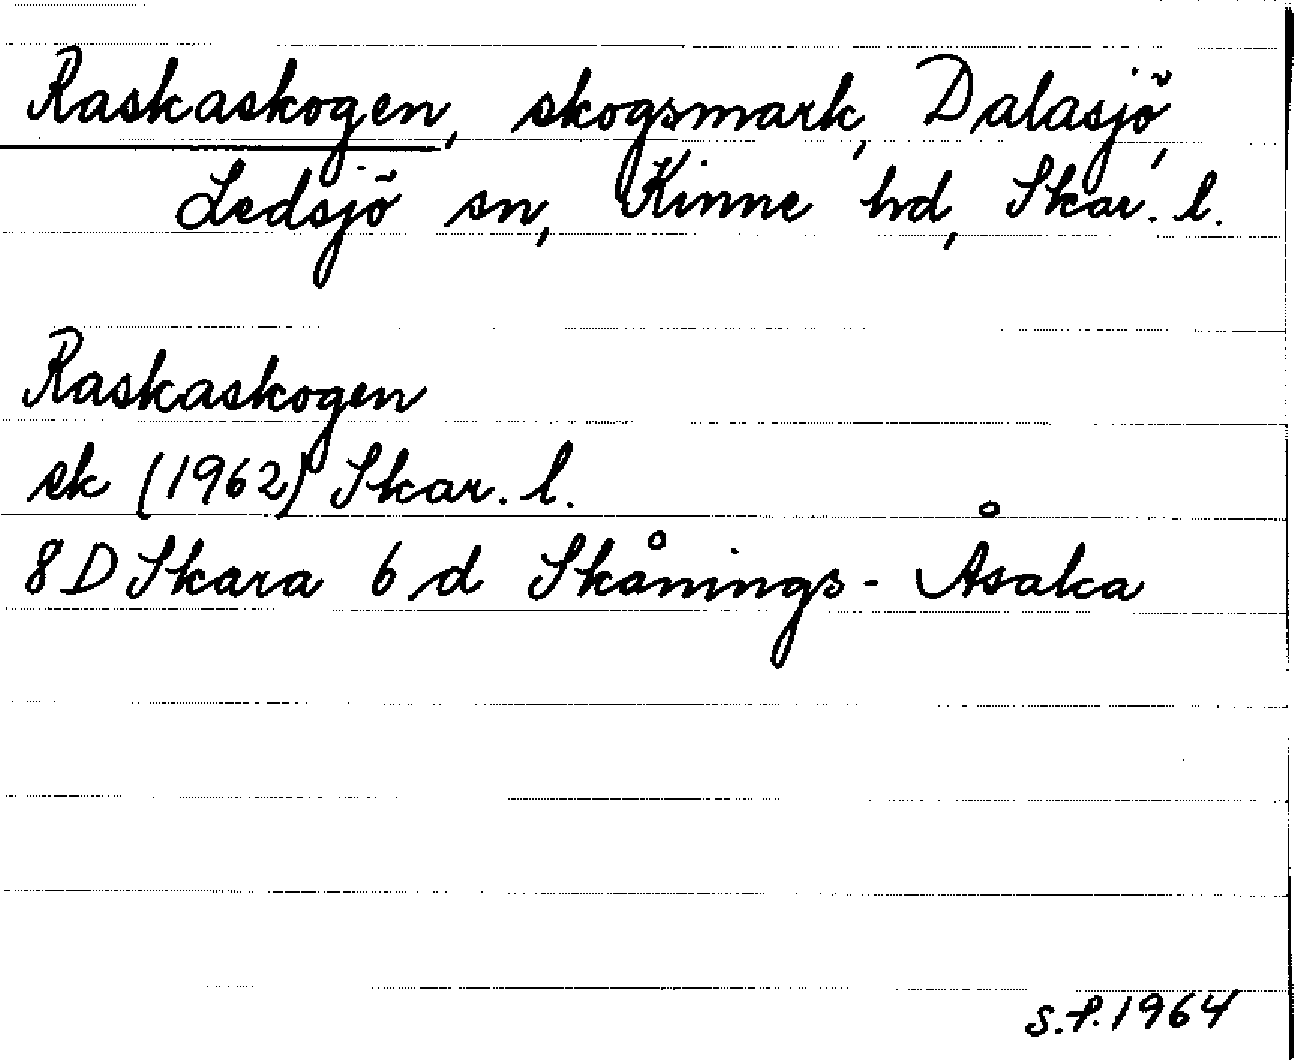 Raskaskogen, skogsmark, Dalasjö,
Ledsjö sn, Kinne hd, Skar. l.
Raskaskogen
sk (1962) Skar. l.
8 D Skara 6 d Skånings-Åsaka
S.P. 1964